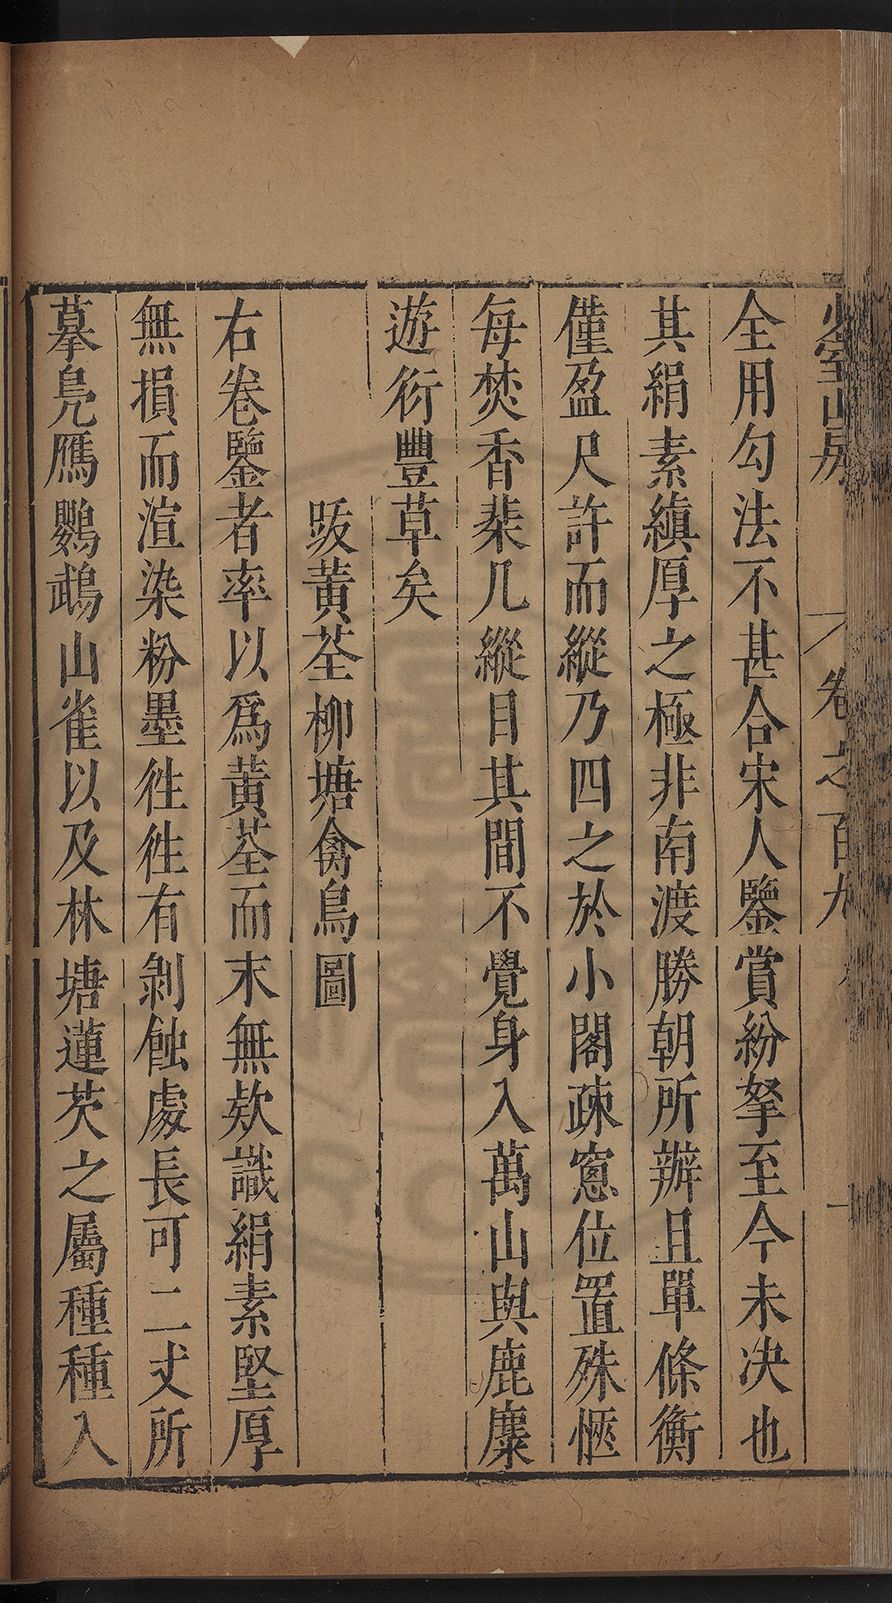 少室山房
卷之百九
全用勾法不甚合宋人鑒賞紛拏至今未决也
其絹素縝厚之極非南渡勝朝所辦且單條衡
僅盈尺許而縱乃四之於小閣疎窻位置殊愜
每焚香棐几縱目其間不覺身入萬山與鹿麋
遊衍豐草矣
跋黃荃柳塘禽鳥圖
右卷鑒者率以爲黃荃而末無欵識絹素堅厚
無損而渲染粉墨徃徃有剝蝕處長可二丈所
摹鳧鴈鸚鵡山雀以及林塘蓮芡之屬種種入